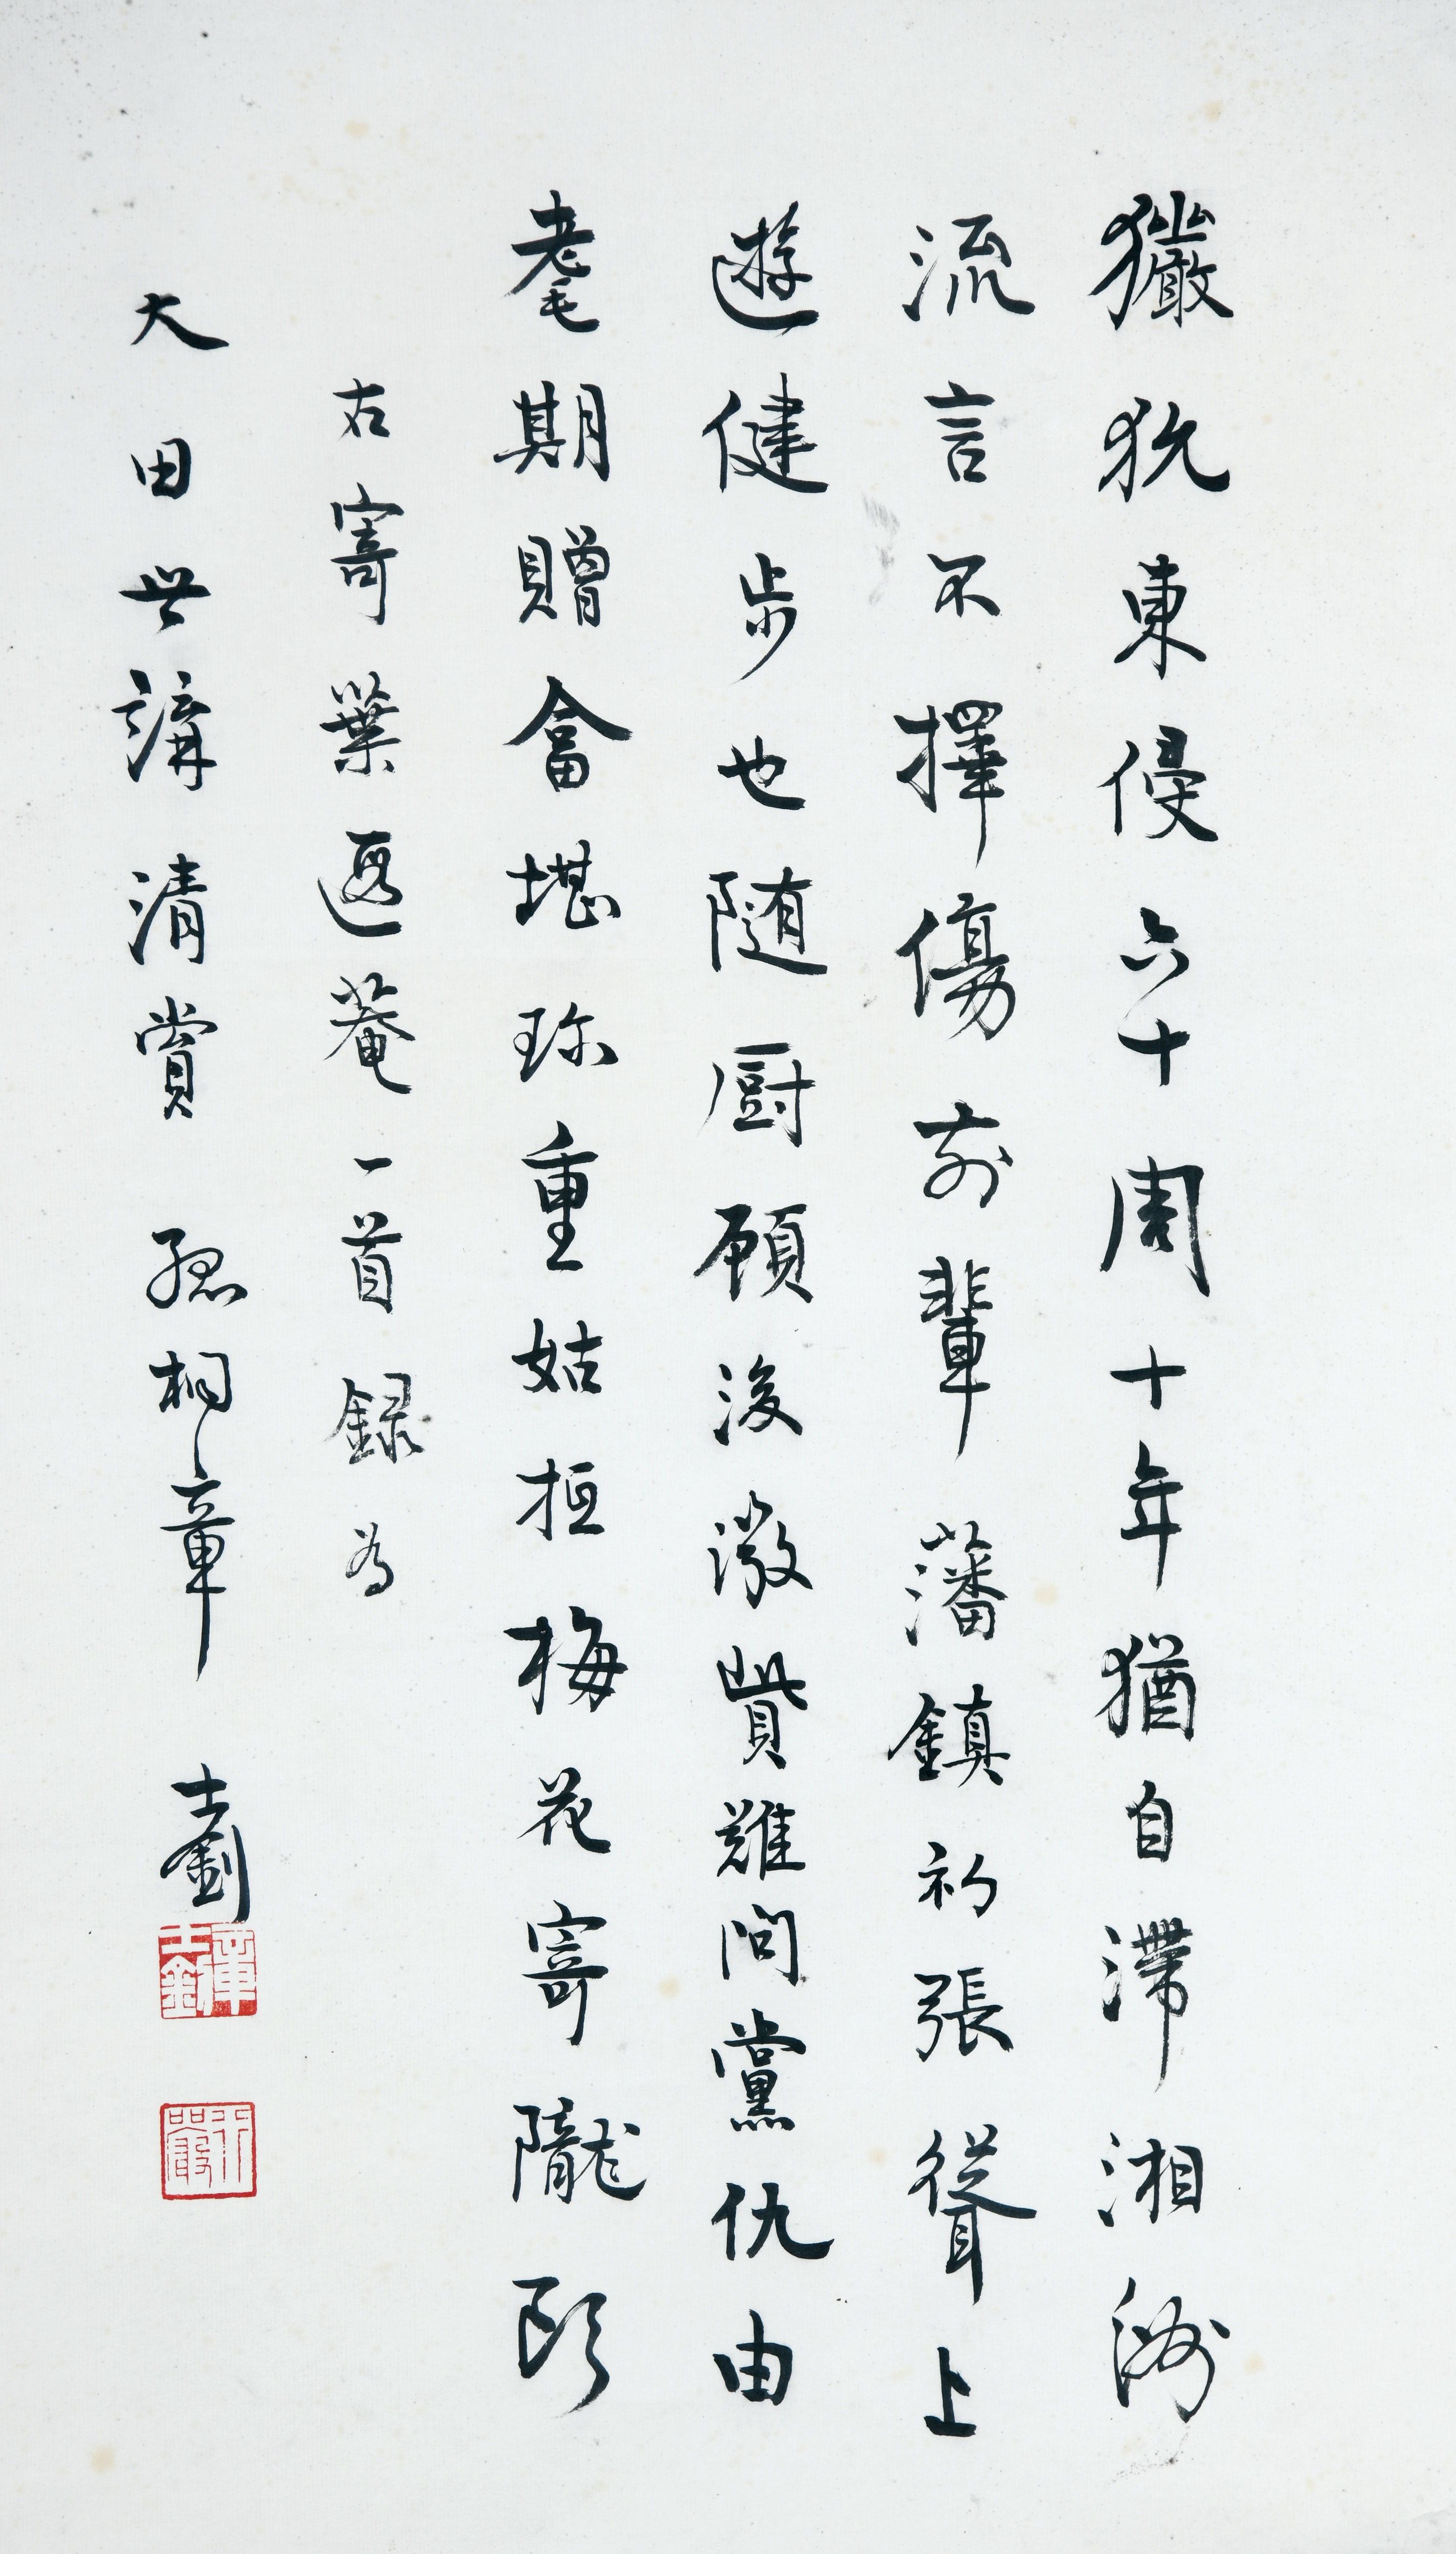 玁狁東侵六十周十年猶自滯湘洲
流言不擇傷前輩藩鎮初張聳上
遊健步也隨厨顧後激贊難問黨仇由
耄期贈畣堪珍重姑抵梅花寄隴頭
右寄葉遐菴一首録為
大田世講清賞 孤桐章士釗
章士釗
行嚴